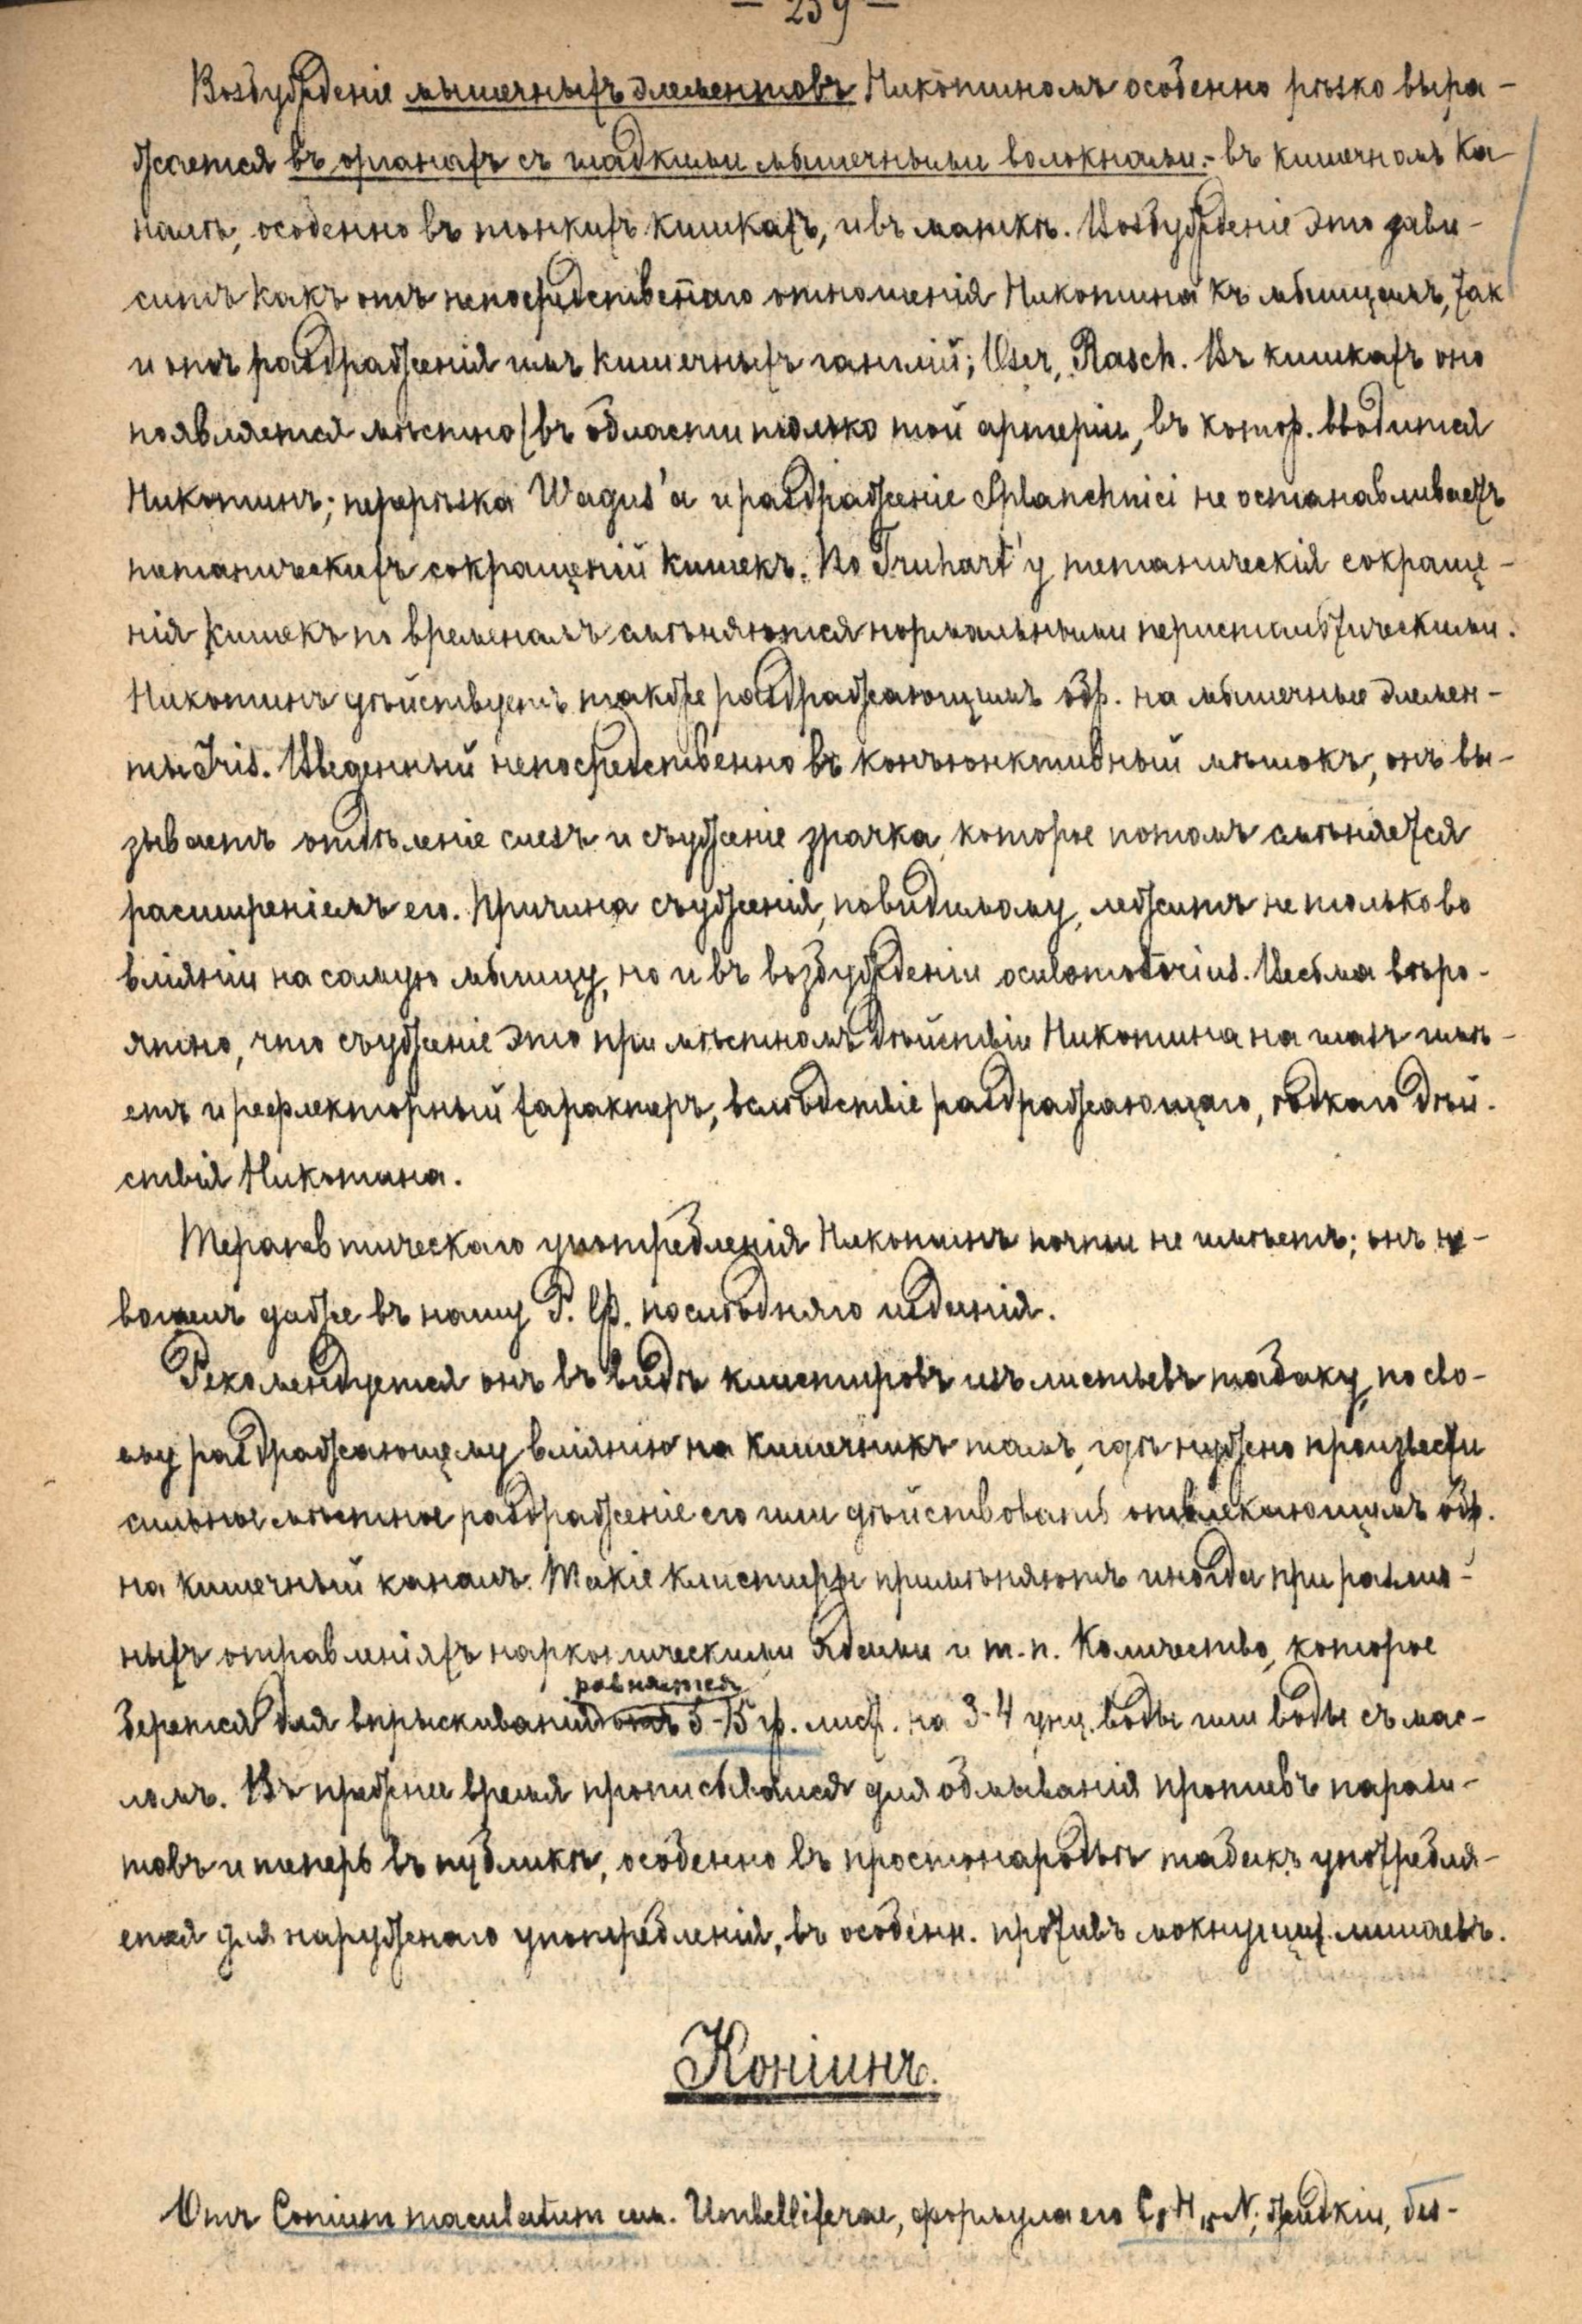 — 259 —
Возбужденіе мышечныхъ элементовъ Никотиномъ особенно рѣзко выра-
жается въ органахъ съ гладкими мышечными волокнами:- въ кишечномъ ка
налѣ, особенно въ тонкихъ кишкахъ, и въ маткѣ. Возбужденіе это зави-
ситъ какъ отъ непосредственнаго отношенія Никотина къ мышцамъ, так
и отъ раздраженія имъ кишечныхъ ганглій; Oser, Rasch. Въ кишкахъ оно
появляется мѣстно (въ области только той артеріи, въ котор. вводится
Никотинъ; перерѣзка Wagus'a и раздраженіе Splanchnici не останавливаетъ
тетаническихъ сокращеній кишекъ. По Truhart'у тетаническія сокраще-
нія кишекъ по временамъ смѣняются нормальными перистальтическими.
Никотинъ дѣйствуетъ также раздражающимъ обр. на мышечные элемен-
ты Iris. Введенный непосредственно въ конъюнктивный мѣшокъ, онъ вы-
зываетъ отдѣленіе слезъ и съуженіе зрачка, которое потомъ смѣняется
расширеніемъ его. Причина съуженія, повидимому, лежитъ не только во
вліяніи на самую мышцу, но и въ возбужденіи oculomotorius. Весьма вѣро-
ятно, что съуженіе это при мѣстномъ дѣйствіи Никотина на глазъ имѣ-
етъ и рефлекторный характеръ, вслѣдствіе раздражающаго, ѣдкаго дѣй-
ствія Никотина.
Терапевтическаго употребленія Никотинъ почти не имѣетъ; онъ не-
вошелъ даже въ нашу Р. Ф. послѣдняго изданія.
Рекомендуется онъ въ видѣ клистировъ изъ листьевъ табаку, по сво-
ему раздражающему вліянію на кишечникъ тамъ, гдѣ нужно произвести
сильное мѣстное раздраженіе его или дѣйствовать отвлекающимъ обр.
на кишечный каналъ. Такіе клистиры примѣняютъ иногда при различ-
ныхъ отравленіяхъ наркотическими ядами и т. п. Количество, которое
равняется
берется для впрыскиваній 5-15 гр. лист. на 3-4 унц. воды или воды съ мас-
ломъ. Въ прежнее время прописывался для обмыванія противъ парази-
товъ и теперь въ публикѣ, особенно въ простонародьѣ табакъ употребля-
ется для наружнаго употребленія, въ особенн. противъ мокнущих. лишаевъ.
Коніинъ.
Отъ Conium maculatum сем. Umbelliferae, формула его C₈H₁₅N; жидкій, без-